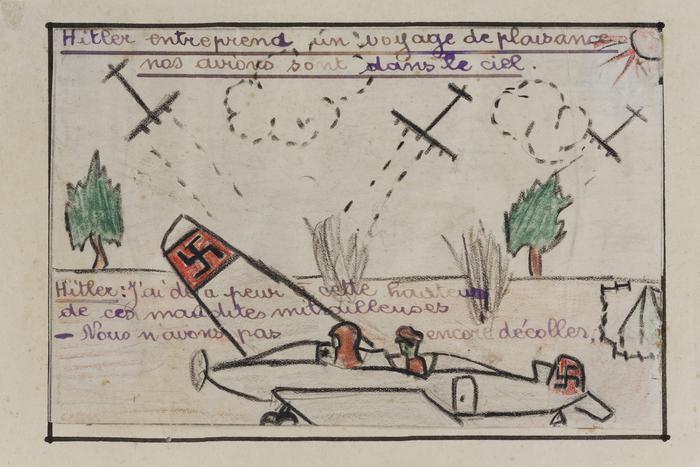 Hitler entreprend un voyage de plaisance
nos avions sont dans le ciel.
Hitler: J'ai déja peur à cette hauteur
de ces maudites mitrailleuses
— Nous n'avons pas encore décollés.